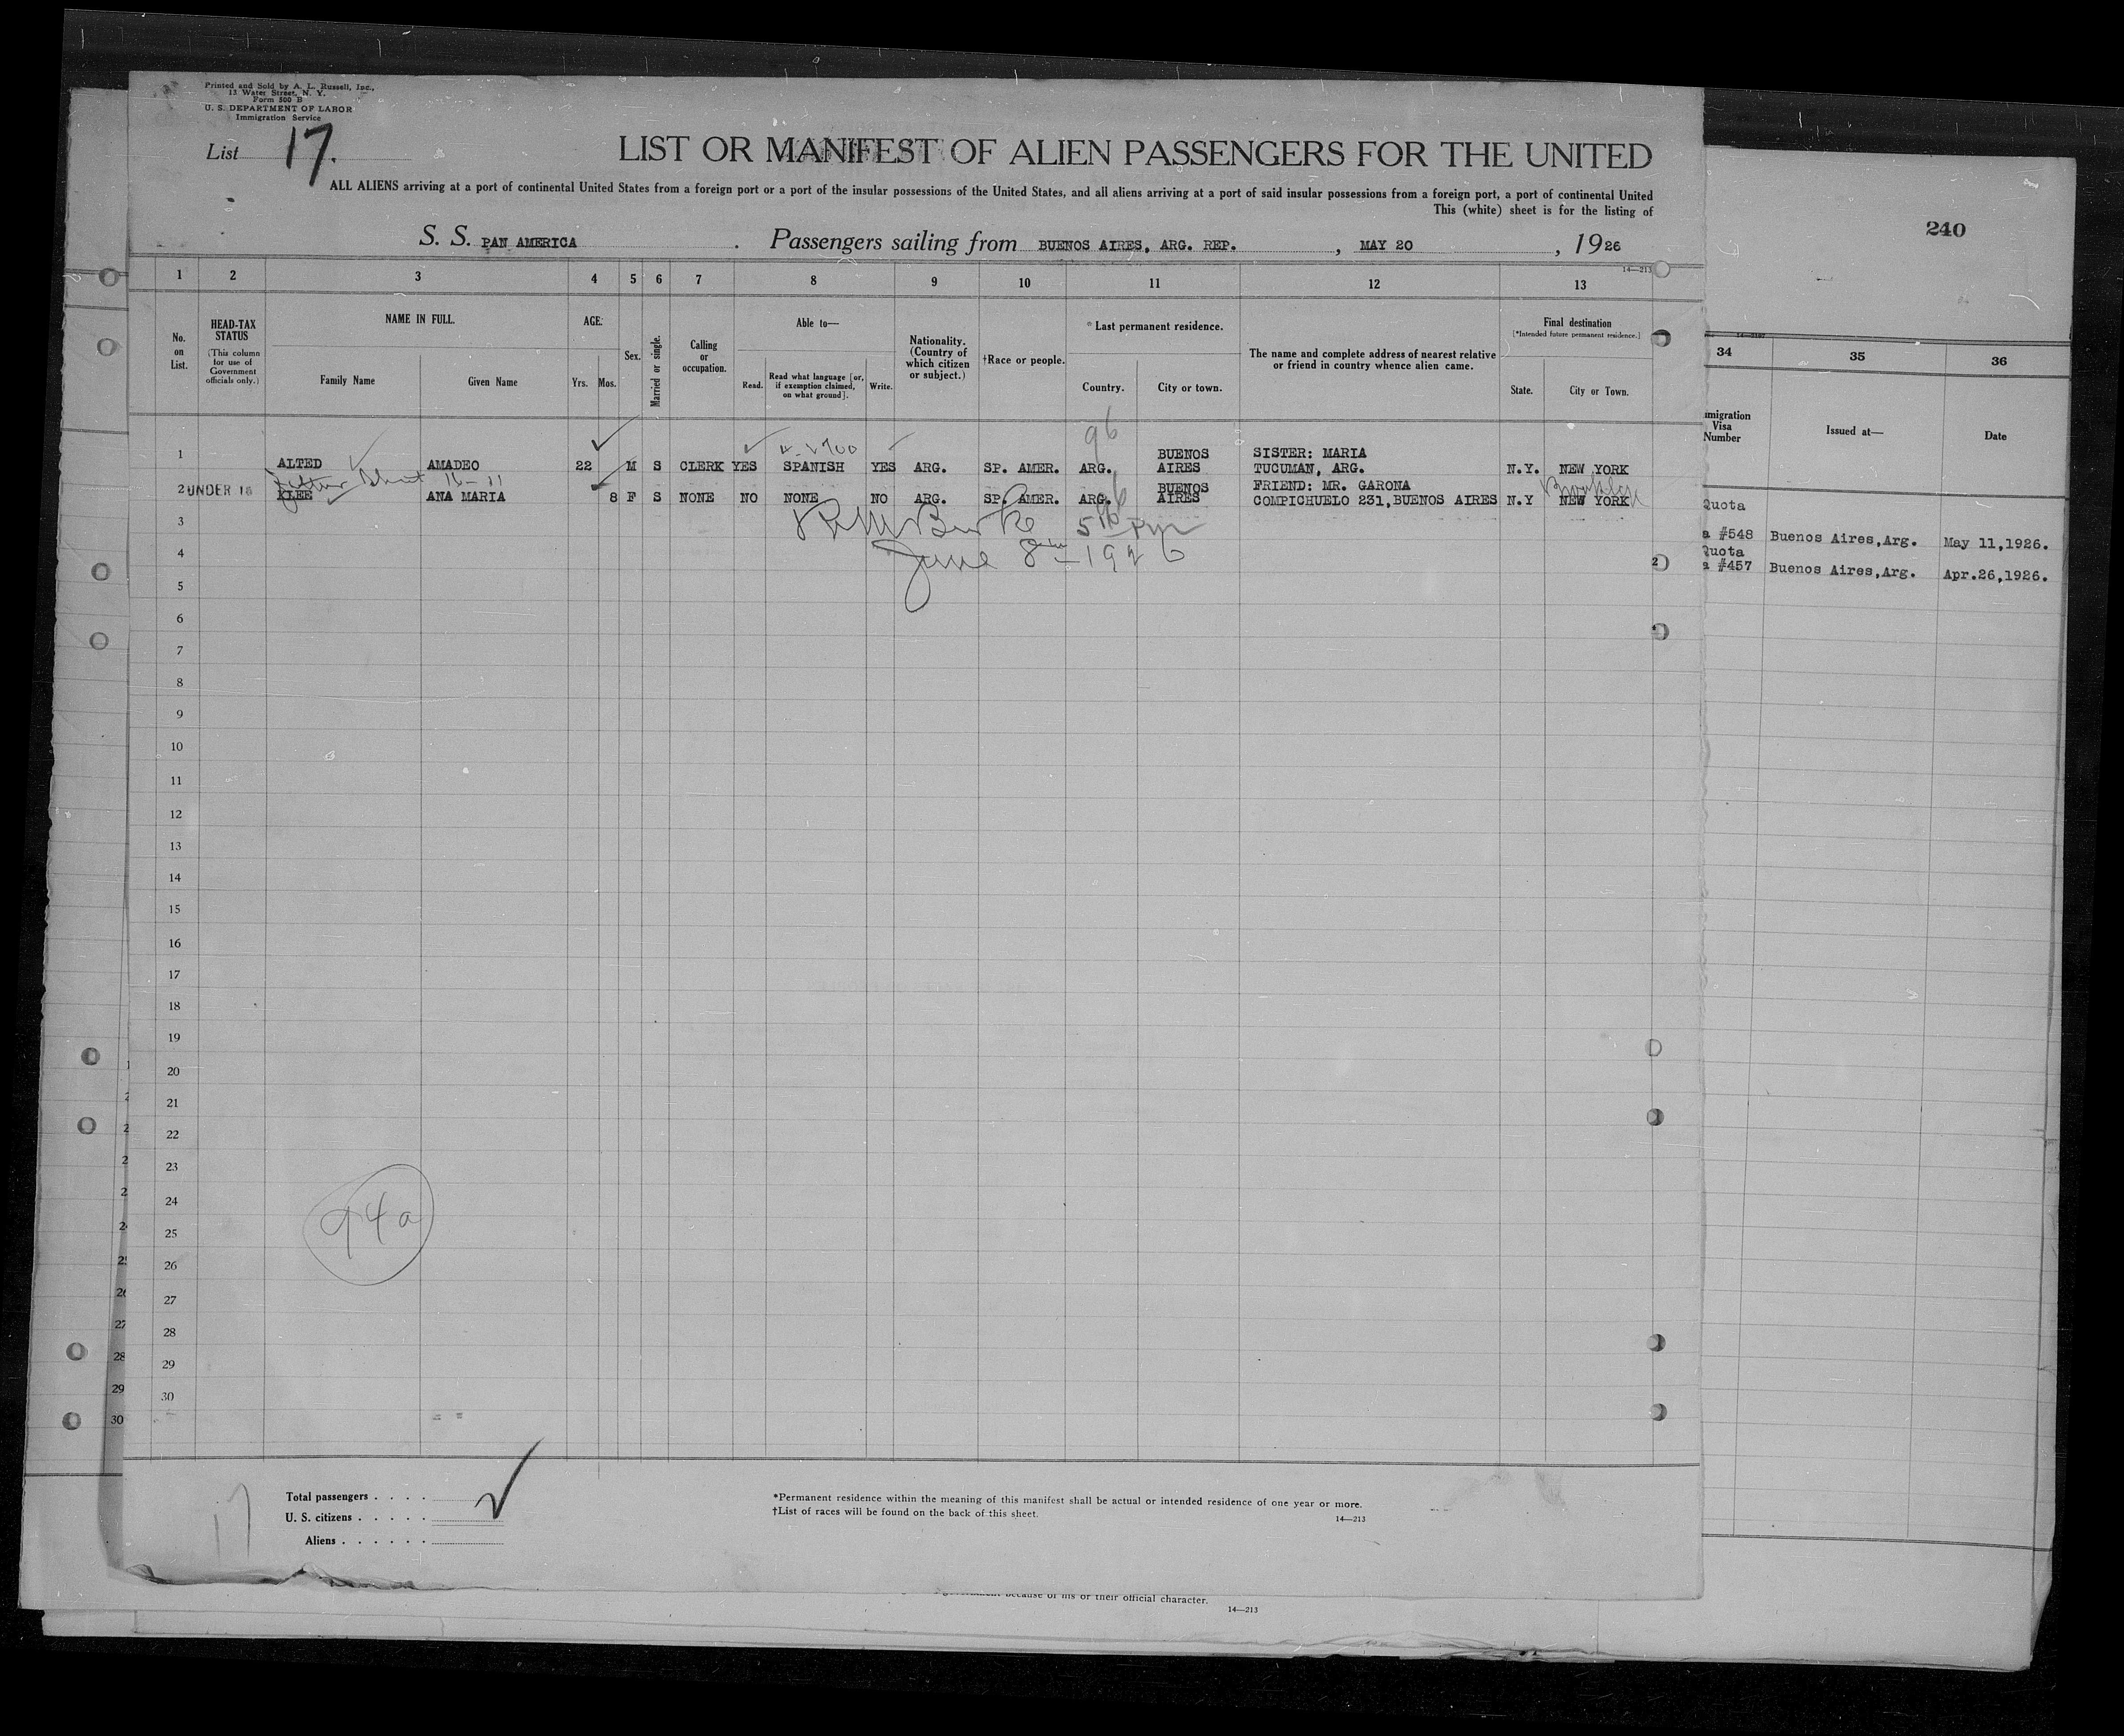 Printed and Sold by A. L. Russell, Inc.,
12 Water Street, N. Y.
Form 500 B
U. S. DEPARTMENT OF LABOR
Immigration Service
List 17.
LIST OR MANIFEST OF ALIEN PASSENGERS FOR THE UNITED
ALL ALIENS arriving at a port of continental United States from a foreign port or a port of the insular possessions of the United States, and all aliens arriving at a port of said insular possessions from a foreign port, a port of continental United
This (white) sheet is for the listing of
S. S. PAN AMERICA . Passengers sailing from BUENOS AIRES, ARG. REP. , MAY 20 , 1926
240
14—213
1 2 3 4 5 6 7 8 9 10 11 12 13
34 35 36
No. on List.
HEAD-TAX STATUS
(This column for use of Government officials only.)
NAME IN FULL.
Family Name Given Name
AGE.
Yrs. Mos.
Sex.
Married or single.
Calling or occupation.
Able to—
Read. Read what language [or, if exemption claimed, on what ground]. Write.
Nationality. (Country of which citizen or subject.)
†Race or people.
*Last permanent residence.
Country. City or town.
The name and complete address of nearest relative or friend in country whence alien came.
Final destination
[*Intended future permanent residence.]
State. City or Town.
migration Visa Number
Issued at—
Date
96
1 ALTED AMADEO 22 M S CLERK YES SPANISH YES ARG. SP. AMER. ARG. BUENOS AIRES SISTER: MARIA TUCUMAN, ARG. N.Y. NEW YORK
Brooklyn
2 UNDER 16 KLEE ANA MARIA 8 F S NONE NO NONE NO ARG. SP. AMER. ARG. BUENOS AIRES FRIEND: MR. GARONA COMPICHUELO 231,BUENOS AIRES N.Y NEW YORK
Quota
a #548 Buenos Aires,Arg. May 11,1926.
Quota
a #457 Buenos Aires,Arg. Apr.26,1926.
3
June 8 1926
4
5
6
7
8
9
10
11
12
13
14
15
16
17
18
19
20
21
22
23
24
25
26
27
28
29
30
28
29
30
Total passengers . . . .
U. S. citizens . . . . .
Aliens . . . . . .
17
*Permanent residence within the meaning of this manifest shall be actual or intended residence of one year or more.
†List of races will be found on the back of this sheet.
14—213
because of his or their official character.
14—213